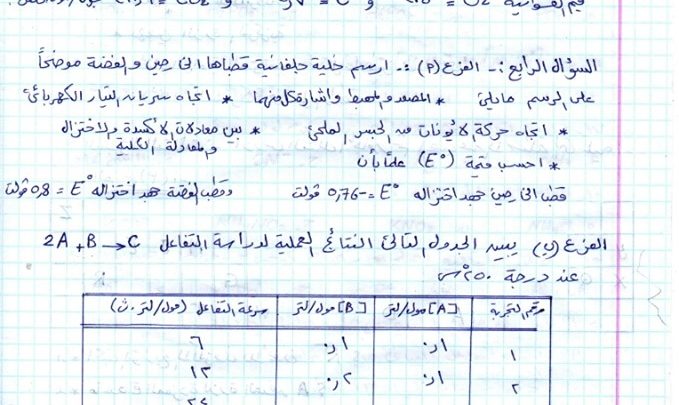 السؤال الرابع :- الفرع (أ) :- ارسم خلية جلفانية قطباها الخارصين والفضة موضحاً
على الرسم مايلي * المصعد والمهبط واشارة كل منهما * اتجاه سريان التيار الكهربائي
* اتجاه حركة الأيونات من الجسر الملحي * بين معادلات الأكسدة والاختزال
والمعادلة الكلية
* احسب قيمة (E°) علماً بأن
قطب الخارصين جهد اختزاله E° = -0,76 فولت وقطب الفضة جهد اختزاله E° = 0,8 فولت
الفرع (ب) يبين الجدول التالي النتائج العملية لدراسة التفاعل 2A + B → C
عند درجة ٢٥٠ س
رقم التجربة [A] مول/لتر [B] مول/لتر سرعة التفاعل (مول/لتر.ث)
١ ٠,١ ٠,١ ٦
٢ ٠,١ ٠,٢ ١٢
٢٤